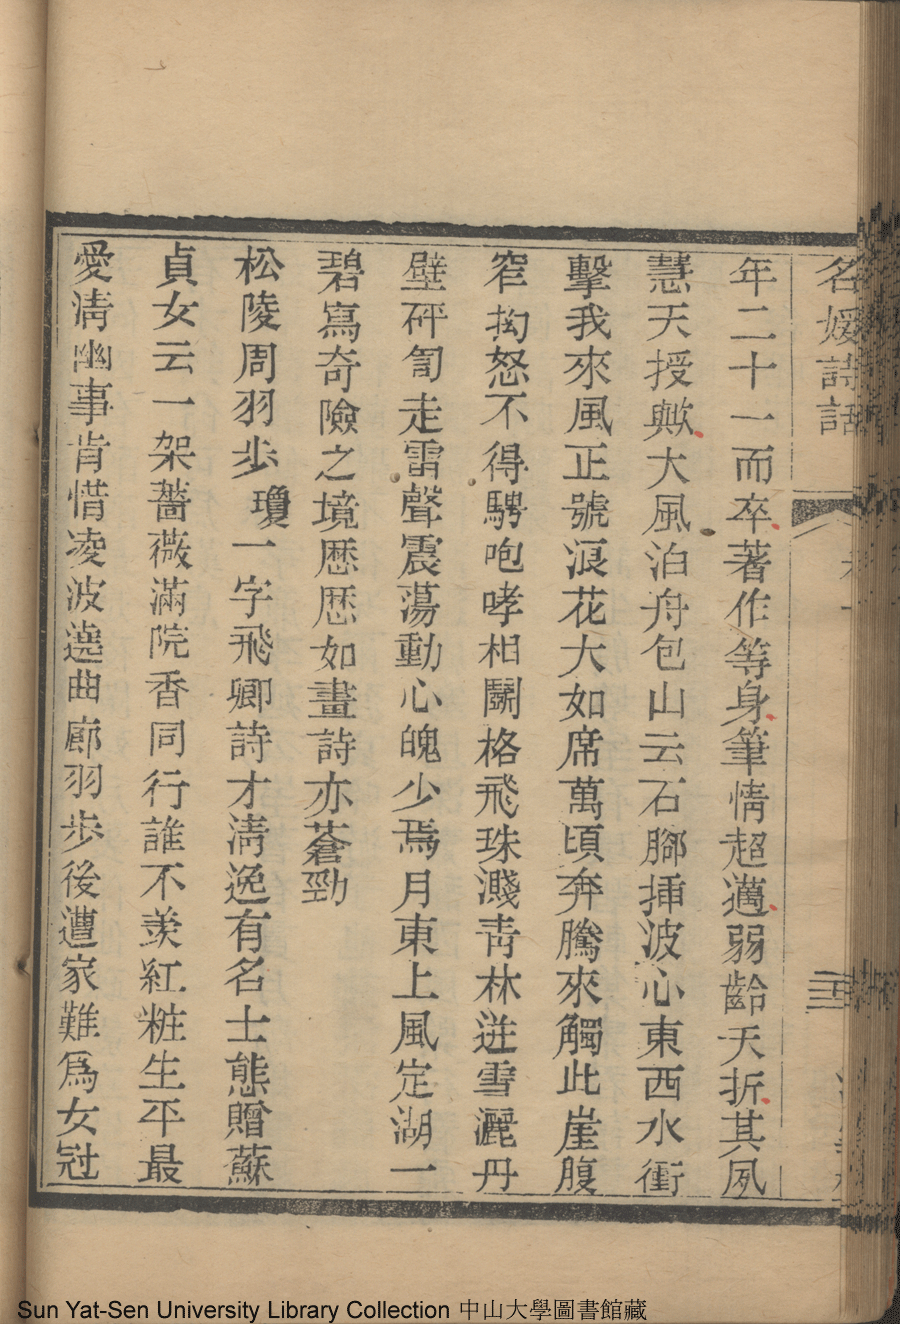 名媛詩話
三
年二十一而卒著作等身筆情超邁弱齡夭折其夙
慧天授歟大風泊舟包山云石腳揷波心東西水衝
擊我來風正號浪花大如席萬頃奔騰來觸此崖腹
窄拗怒不得騁咆哮相鬭格飛珠濺靑林迸雪灑丹
壁砰訇走雷聲震蕩動心魄少焉月東上風定湖一
碧寫奇險之境歷歷如畫詩亦蒼勁
松陵周羽步瓊一字飛卿詩才淸逸有名士態贈蘇
貞女云一架薔薇滿院香同行誰不羨紅粧生平最
愛淸幽事肯惜凌波遶曲廊羽步後遭家難爲女冠
Sun Yat-Sen University Library Collection 中山大學圖書館藏